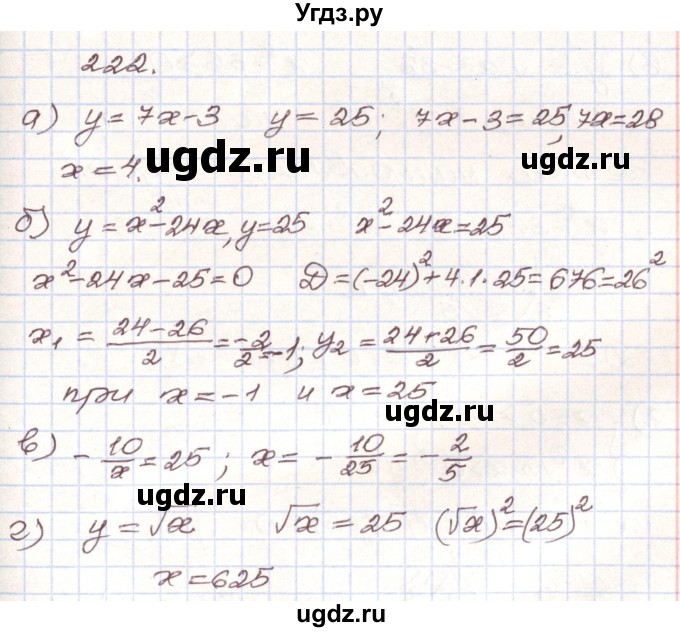 Угдз.ру
222.
а) y = 7x-3 y = 25; 7x-3=25, 7x=28
ugdz.ru
ugdz.ru
x = 4.
б) y = x²-24x, y=25 x²-24x=25
x²-24x-25=0 D=(-24)²+4·1·25=676=26²
x₁ = (24-26)/2 = -2/2=-1; y₂ = (24+26)/2 = 50/2 = 25
при x=-1 и x=25
ugdz.ru
в) -10/x = 25; x = -10/25 = -2/5
ugdz.ru
г) y=√x √x = 25 (√x)²=(25)²
x=625
ugdz.ru